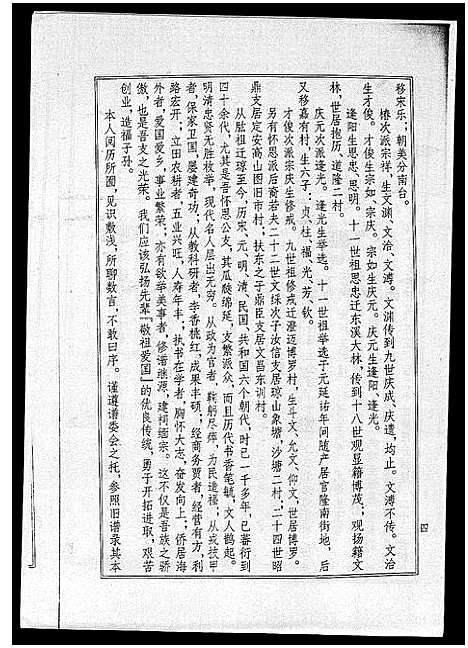 移宋乐；朝美分南台。
椿次派宗祥，生文渊、文洽、文溥。文渊传到九世庆成、庆遗，均止。文溥不传。文洽
生才俊。才俊生宗如、宗庆。宗如生庆元。庆元生逢阳、逢光。
逢阳生思忠、思明。十一世祖思忠迁东溪大林，传到十八世观显籍博茂；观扬籍文
林，世居抱历、道隆二村。
庆元次派逢光。逢光生举选。十一世祖举选于元延祐年间随产居官隆南街地，后
又移嘉有村，生六子，贞、柱、福、光、芳、钦。
才俊次派宗庆生修戒。九世祖修戒迁澄迈博罗村，生斗文、允文、仰文，世居博罗。
另有怀恩派后裔若夫二十二世文绥次子汝信支居琼山象塘，沙塘二村，二十四世昭
鼎支居定安高山图旧市村；扶东之子鼎臣支居文昌东训村。
从肱祖迁琼至今，历宋、元、明、清、民国、共和国六个朝代，时已一千多年，已蕃衍到
四十余代，尤其是吾怀恩公支，其瓜瓞绵延，支繁派众，而且历代书香笔毓，文人鹊起。
明清忠贤无胜枚举，现代名人层出无穷。从政为官者，鞠躬尽瘁，为民造福；从戎技甲
者，保家卫国，屡建奇功；从教科研者，李香桃红，成果丰硕；经商务贾者，经营有方，利
路宏开；立田农耕者，五业兴旺，人寿年丰；执书在学者，胸怀大志，奋发向上；侨居海
外者，爱国爱乡，事业繁荣；亦有欲举美事者，修谱继源，建祠缅宗。这不仅是吾族之骄
傲，也是吾支之光荣。我们应该弘扬先辈『敬祖爱国』的优良传统，勇于开拓进取，艰苦
创业，造福子孙。
本人阅历所囿，见识敷浅，所聊数言，不敢曰序。谨遵谱委会之托，参照旧谱录其本
四